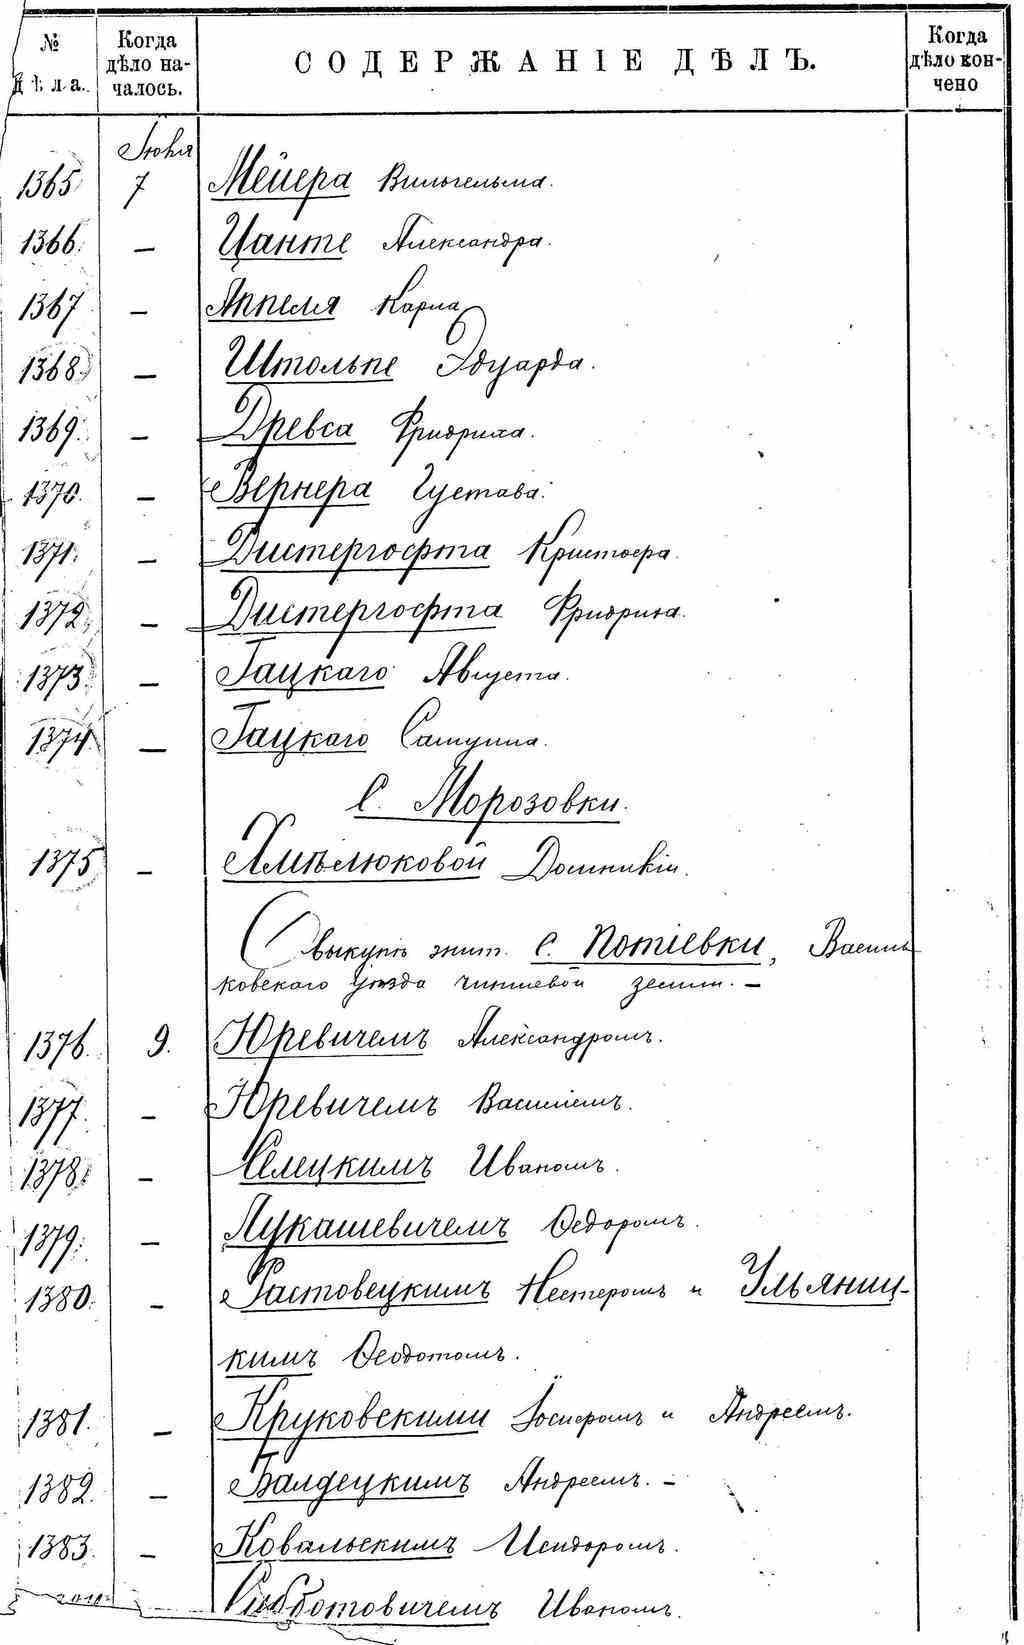 № дѣла. Когда дѣло началось. СОДЕРЖАНІЕ ДѢЛЪ. Когда дѣло кончено
Іюня
1365 7 Мейера Вильгельма.
1366. — Цанте Александра.
1367 — Аппеля Карла
1368. — Штольпе Эдуарда.
1369. — Древса Фридриха.
1370. — Вернера Густава.
1371. — Дистергофта Кристофа.
1372. — Дистергофта Фридриха.
1373. — Гацкаго Августа.
1374. — Гацкаго Самуила.
С. Морозовки.
1375 — Хмѣлюковой Домникіи.
О выкупѣ жит. с. Потіевки, Василь-
ковскаго уѣзда чиншевой земли. —
1376. 9. Юревичемъ Александромъ.
1377. — Юревичемъ Василіемъ.
1378. — Селецкимъ Иваномъ.
1379. — Лукашевичемъ Ѳедоромъ.
1380. — Растовецкимъ Нестеромъ и Ульяниц-
кимъ Ѳеодотомъ.
1381. — Круковскими Іосифомъ и Андреемъ.
1382. — Балдецкимъ Андреемъ. —
1383. — Ковальскимъ Исидоромъ.
Субботовичемъ Иваномъ.